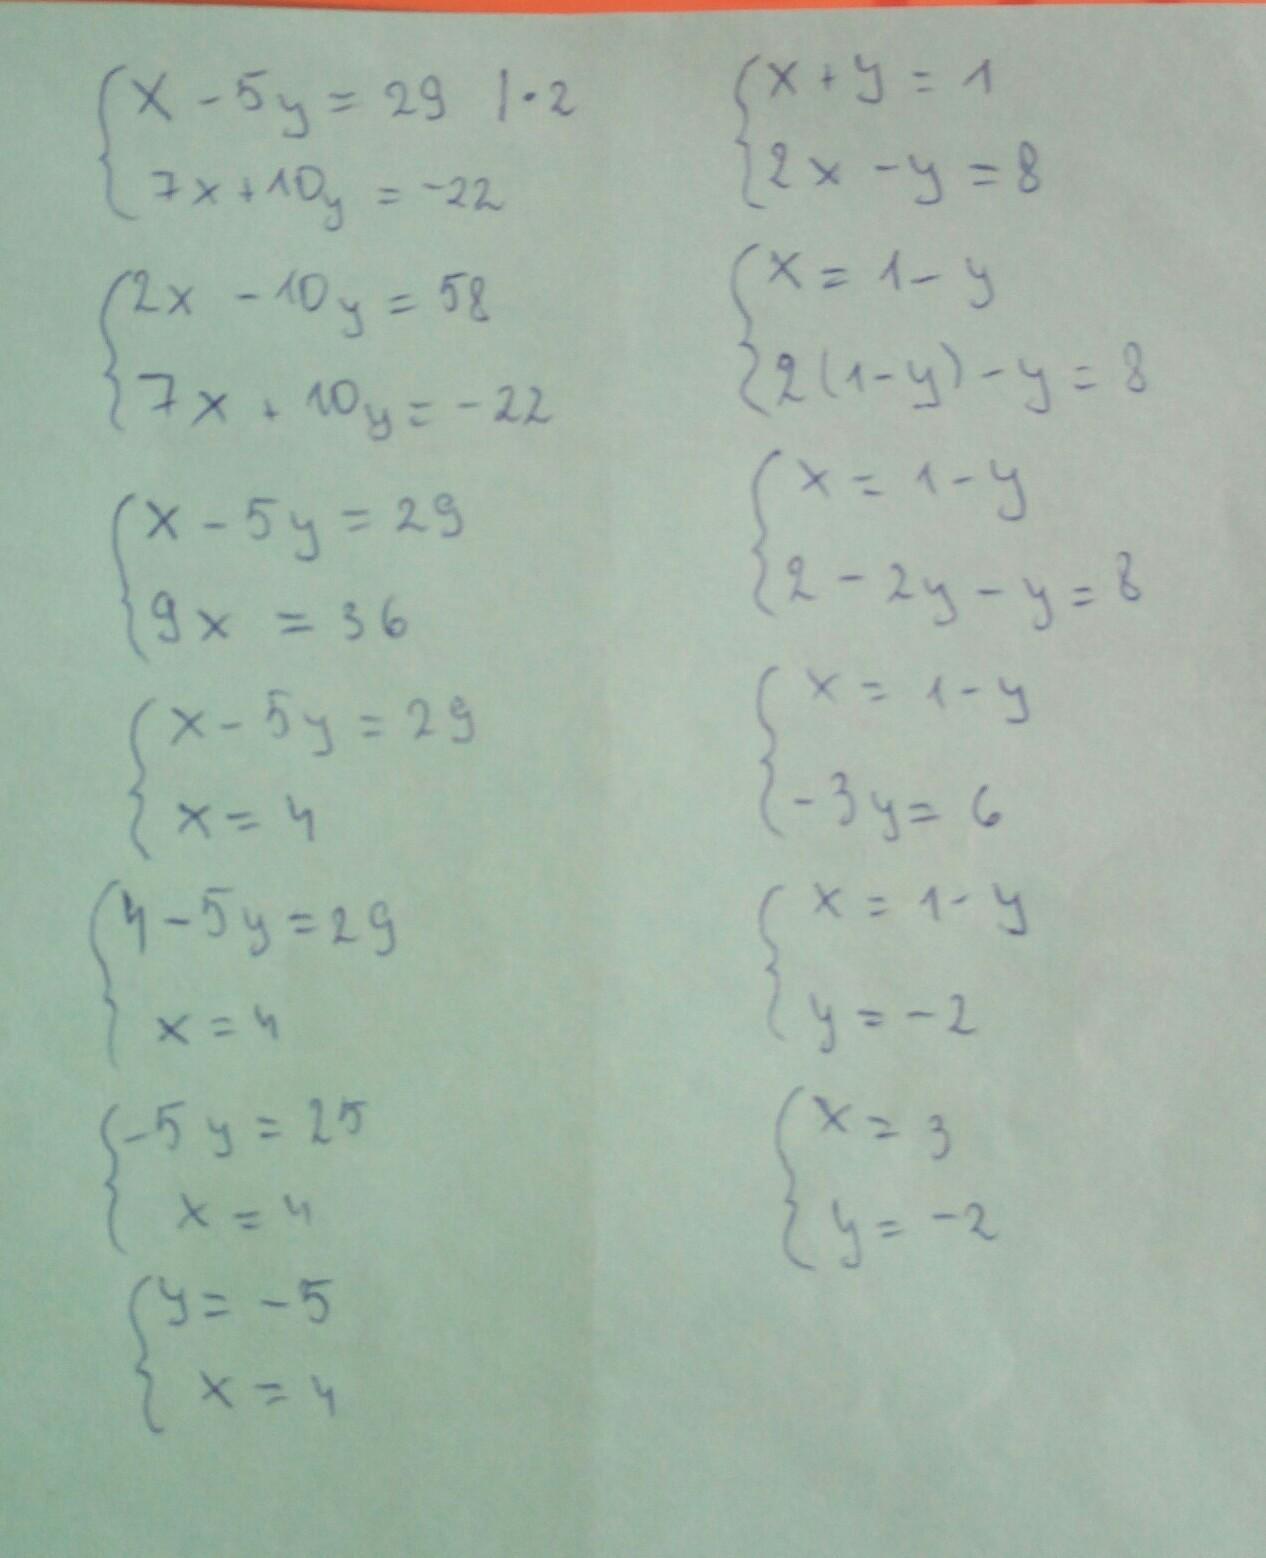 x - 5y = 29 |·2
7x + 10y = -22
2x - 10y = 58
7x + 10y = -22
x - 5y = 29
9x = 36
x - 5y = 29
x = 4
4 - 5y = 29
x = 4
-5y = 25
x = 4
y = -5
x = 4
x + y = 1
2x - y = 8
x = 1 - y
2(1 - y) - y = 8
x = 1 - y
2 - 2y - y = 8
x = 1 - y
-3y = 6
x = 1 - y
y = -2
x = 3
y = -2